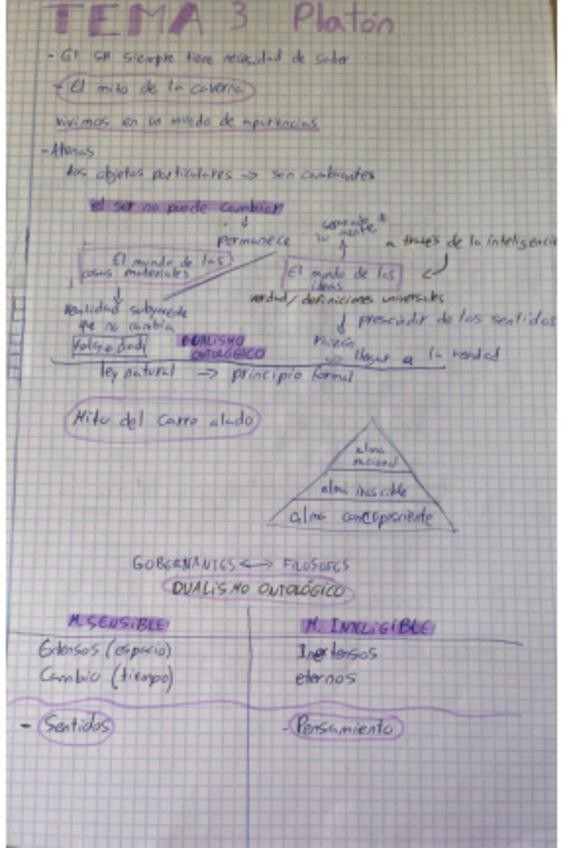 TEMA 3 Platón
- El SH siempre tiene necesidad de saber
- El mito de la caverna
vivimos en un mundo de apariencias
- Atenas
los objetos particulares → son cambiantes
el ser no puede cambiar
permanece
a través de la inteligencia
El mundo de las
cosas materiales
El mundo de las
ideas
verdad/definiciones universales
realidad subyacente
que no cambia
prescindir de los sentidos
falsedad
DUALISMO
ONTOLÓGICO
razón
llegar a la verdad
ley natural → principio formal
Mito del carro alado
alma
racional
alma irascible
alma concupiscente
GOBERNANTES <-> FILOSOFOS
DUALISMO ONTOLÓGICO
M. SENSIBLE
M. INTELIGIBLE
Extensos (espacio)
Inextensos
Cambio (tiempo)
eternos
- Sentidos
- Pensamiento